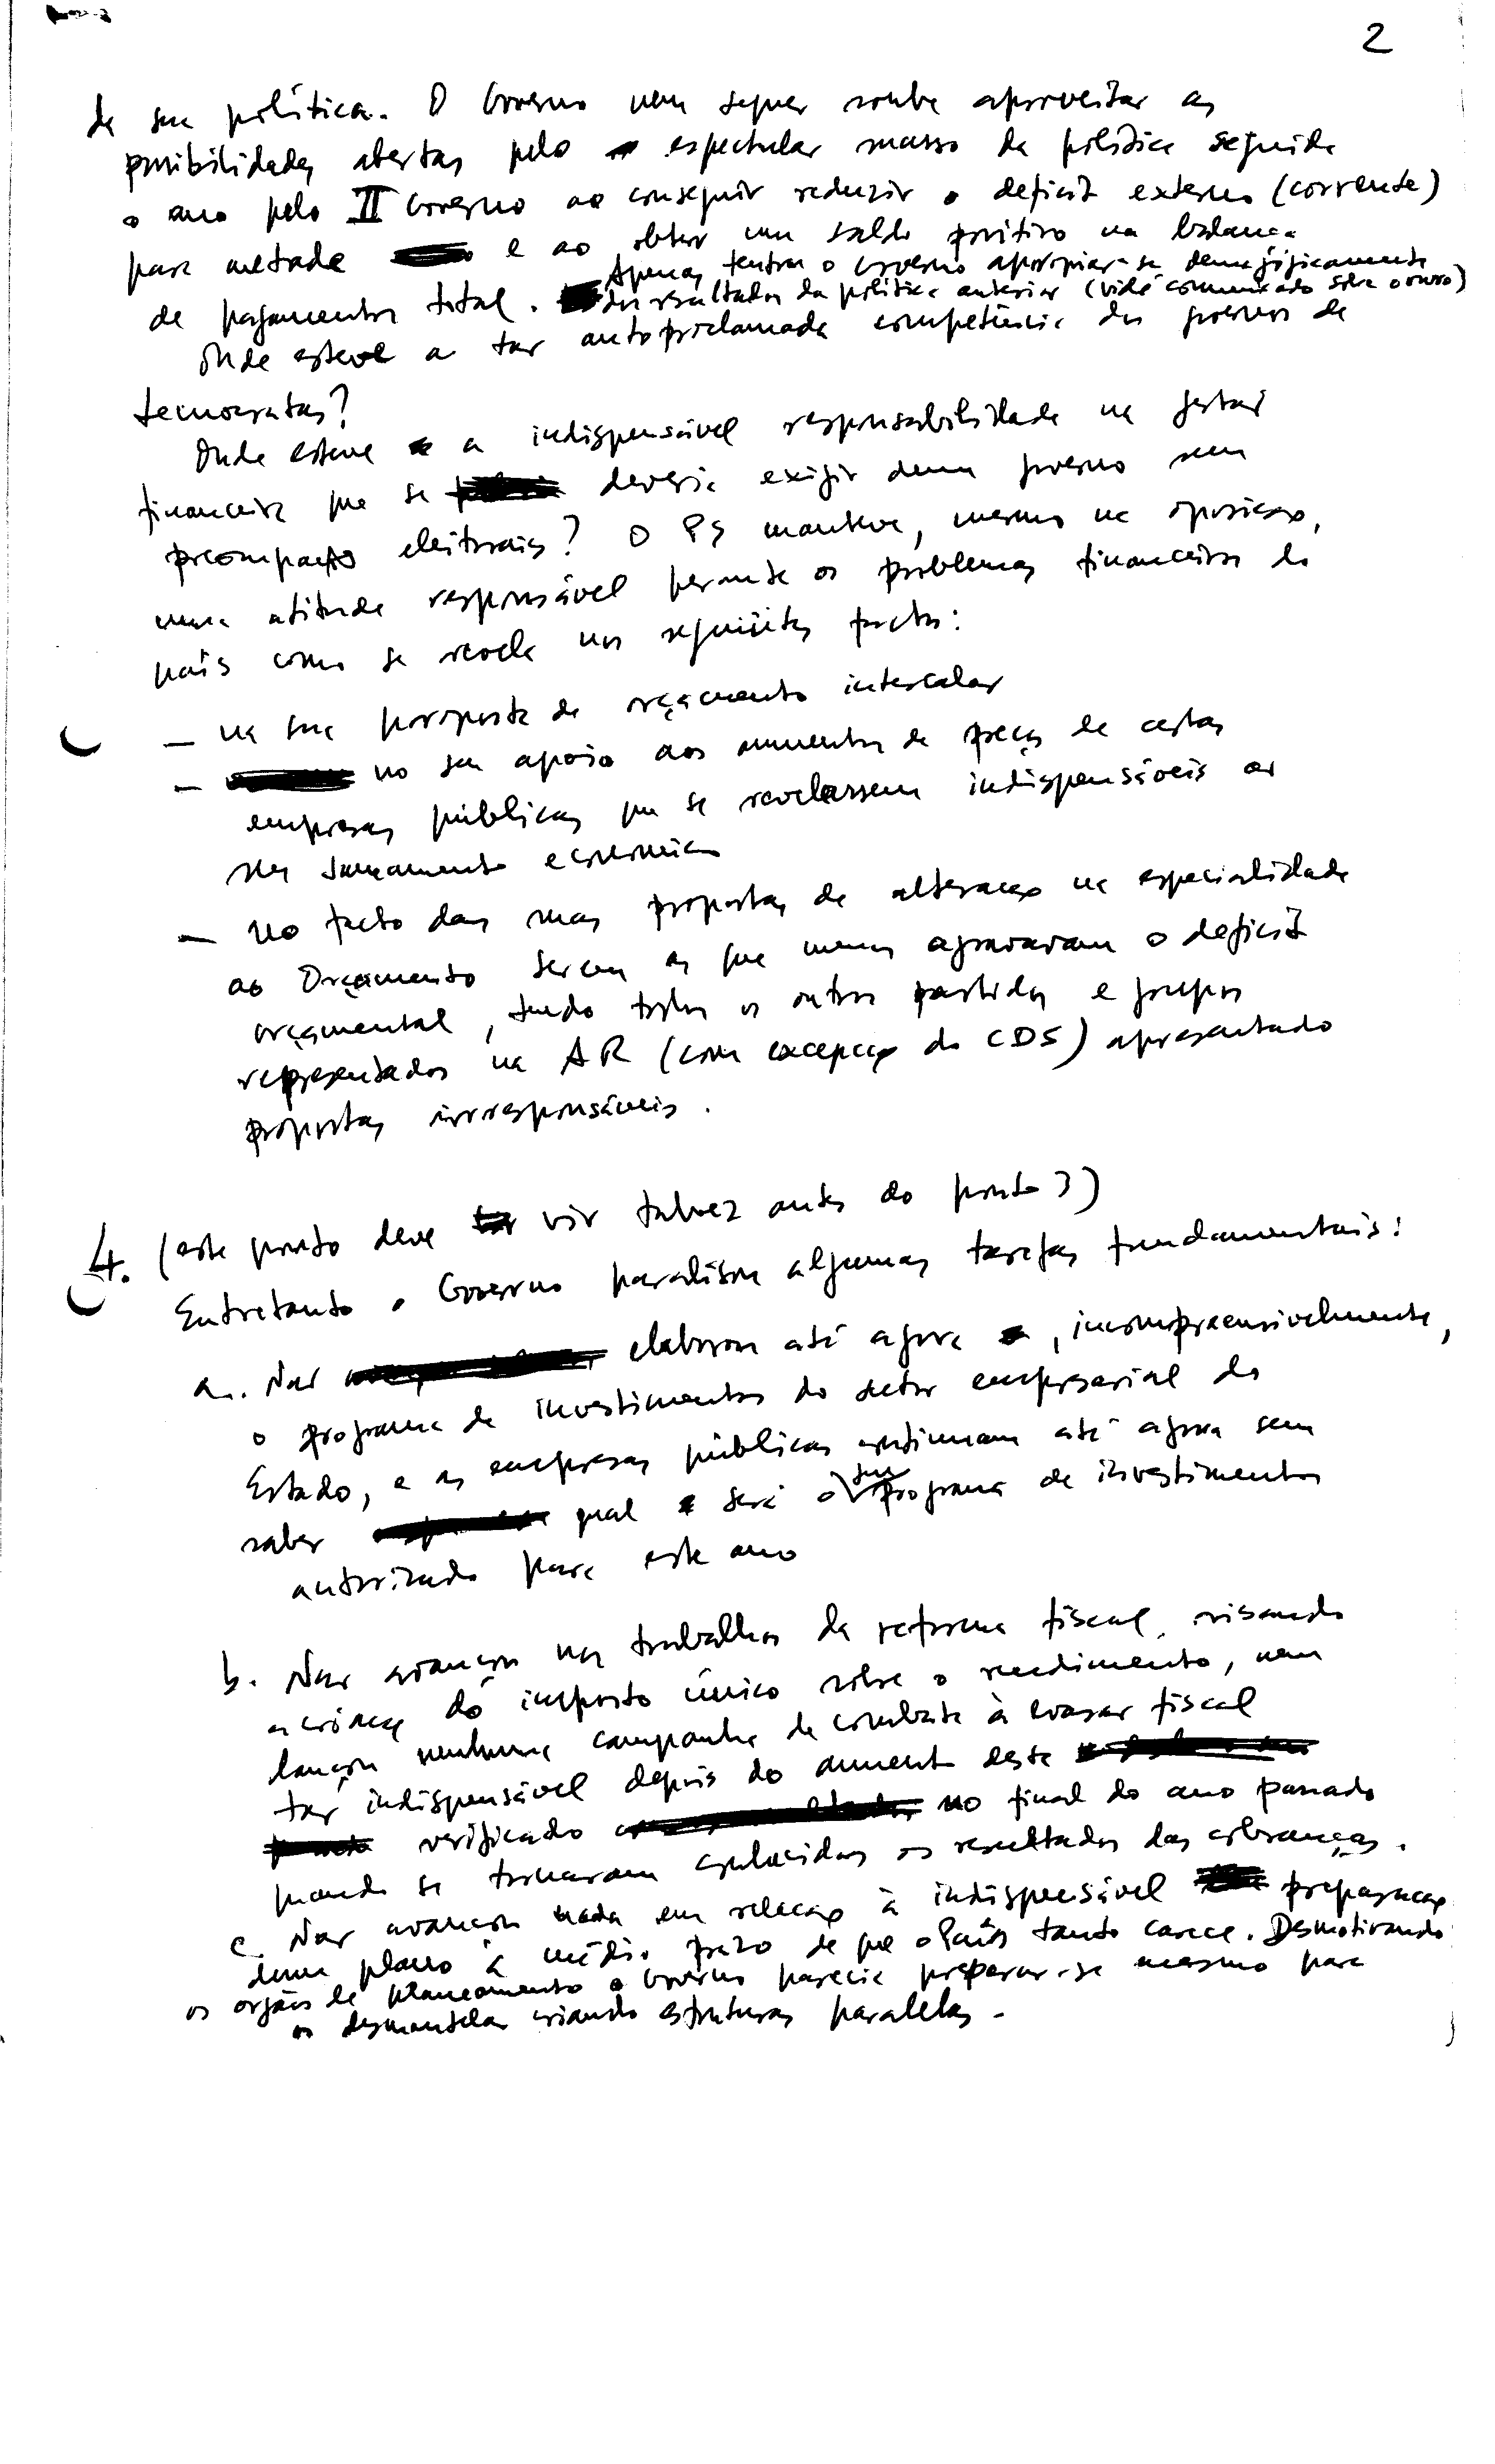 2
da sua política. O Governo nem sequer soube aproveitar as
possibilidades abertas pelo espectular sucesso da política seguida
o ano pelo II Governo ao conseguir reduzir o deficit externo (corrente)
para metade e ao obter um saldo positivo na balança
Apenas tentou o Governo apropriar-se demagogicamente
de pagamentos total. dos resultados da política anterior (vidé comunicado sobre o ouro)
Onde esteve a tão autoproclamada competência do governo de
tecnocratas?
Onde esteve a indispensável responsabilidade na gestão
financeira que se deveria exigir dum governo sem
preocupações eleitorais? O PS manteve, mesmo na oposição,
uma atitude responsável perante os problemas financeiros do
país como se revela nos seguintes factos:
— na sua proposta de orçamento intercalar
— no seu apoio aos aumentos de preços de certas
empresas públicas que se revelassem indispensáveis ao
seu saneamento económico
— no facto das suas propostas de alteração na especialidade
ao Orçamento serem as que menos agravavam o deficit
orçamental, tendo todos os outros partidos e grupos
representados na AR (com excepção do CDS) apresentado
propostas irresponsáveis.
4. (este ponto deve vir talvez antes do ponto 3)
Entretanto o Governo paralisou algumas tarefas fundamentais:
a. Não elaborou até agora, incompreensivelmente,
o programa de investimentos do setor empresarial do
Estado, e as empresas públicas continuam até agora sem
saber qual será o seu programa de investimentos
autorizado para este ano
b. Não avançou nos trabalhos da reforma fiscal, visando
a criação do imposto único sobre o rendimento, nem
lançou nenhuma campanha de combate à evasão fiscal
tão indispensável depois do aumento desta
verificado no final do ano passado
quando se tornaram conhecidos os resultados das cobranças.
c. Não avançou nada em relação à indispensável preparação
dum plano a médio prazo de que o País tanto carece. Desmotivando
os orgãos de planeamento o Governo parecia preparar-se mesmo para
os desmantelar criando estruturas paralelas.